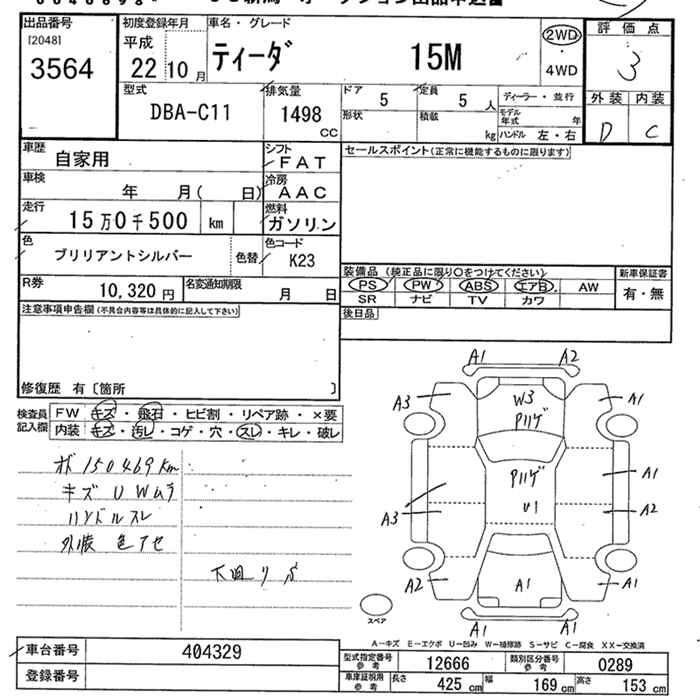 出品番号
[2048]
3564
初度登録年月
平成
22 10 月
車名・グレード
ティーダ 15M
2WD
・
4WD
評価点
3
外装 内装
D C
型式
DBA-C11
排気量
1498
CC
ドア 5
定員 5 人
形状
積載 kg
ディーラー・並行
モデル年式 年
ハンドル 左・右
車歴
自家用
シフト
FAT
セールスポイント(正常に機能するものに限ります)
車検
年 月( 日)
冷房
AAC
走行
15万0千500 km
燃料
ガソリン
色
ブリリアントシルバー
色替
色コード
K23
R券
10,320円
名変通知期限
月 日
装備品(純正品に限り○をつけてください)
新車保証書
PS PW ABS エアB AW
SR ナビ TV カワ
有・無
後日品
注意事項申告欄(不具合内容等は具体的に記入して下さい)
修復歴 有〔箇所 〕
検査員
記入欄
FW キズ・飛石・ヒビ割・リペア跡・×要
内装 キズ・汚レ・コゲ・穴・スレ・キレ・破レ
150469km
キズ UWムラ
ハンドルスレ
外装 色アセ
A1 A2
A3 W3 A1
A1
A3 U1 A2
A2 A1 A1
A1 A1
スペア
A-キズ E-エクボ U-凹み W-補修跡 S-サビ C-腐食 XX-交換済
車台番号 404329
登録番号
型式指定番号
参考
12666
類別区分番号
参考
0289
車庫証明用
参考
長さ 425 cm 幅 169 cm 高さ 153 cm